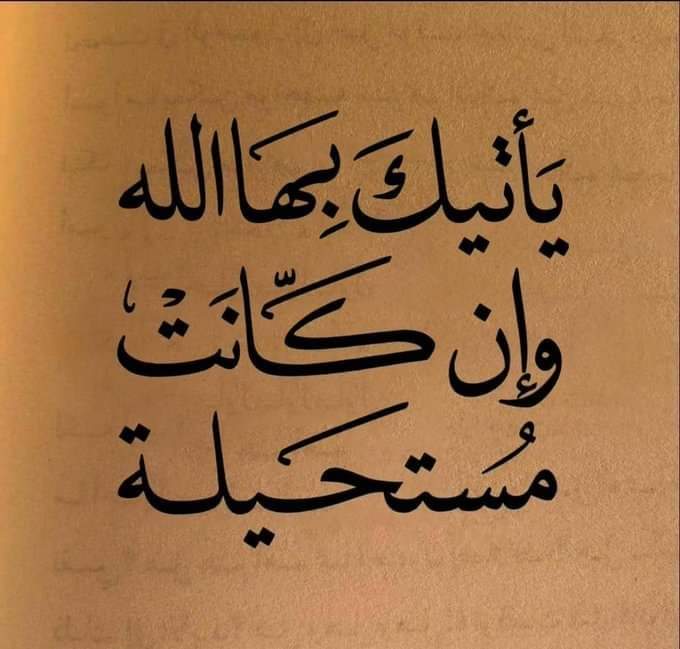 يَأتيكَ بِهَا الله
وإن كَّانَتْ
مُسَتحَيلة